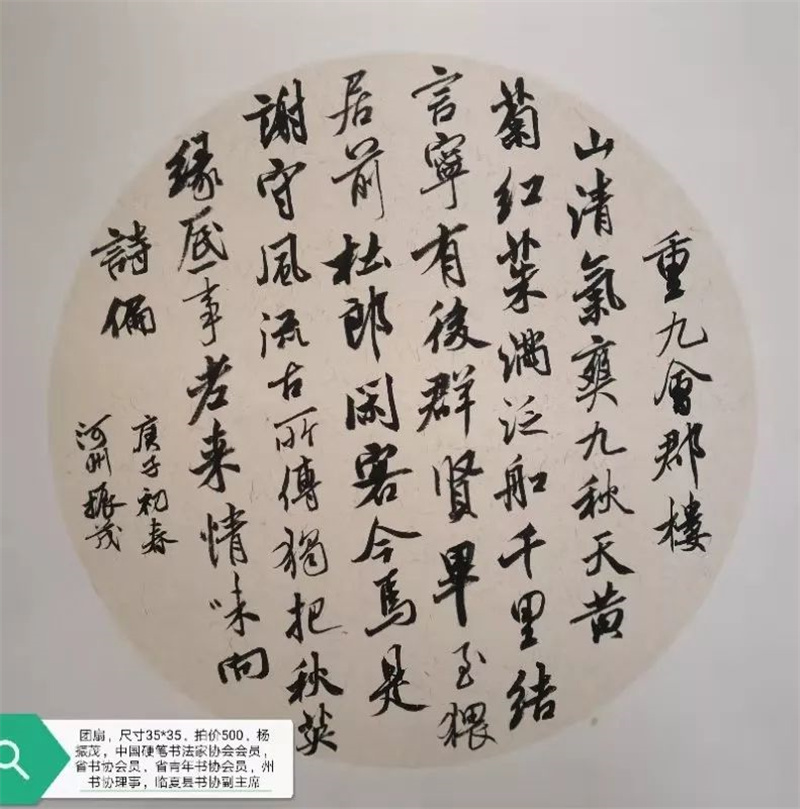 重九會郡樓
山清氣爽九秋天黄
菊红茱满泛船千里結
言寧有後群賢畢至猥
居前杜郎闲客今焉是
謝守風流古所傳獨把秋英
緣底事老来情味向
詩偏
庚子初春
河州振茂
团扇，尺寸35*35，拍价500，杨
振茂，中国硬笔书法家协会会员，
省书协会员，省青年书协会员，州
书协理事，临夏县书协副主席